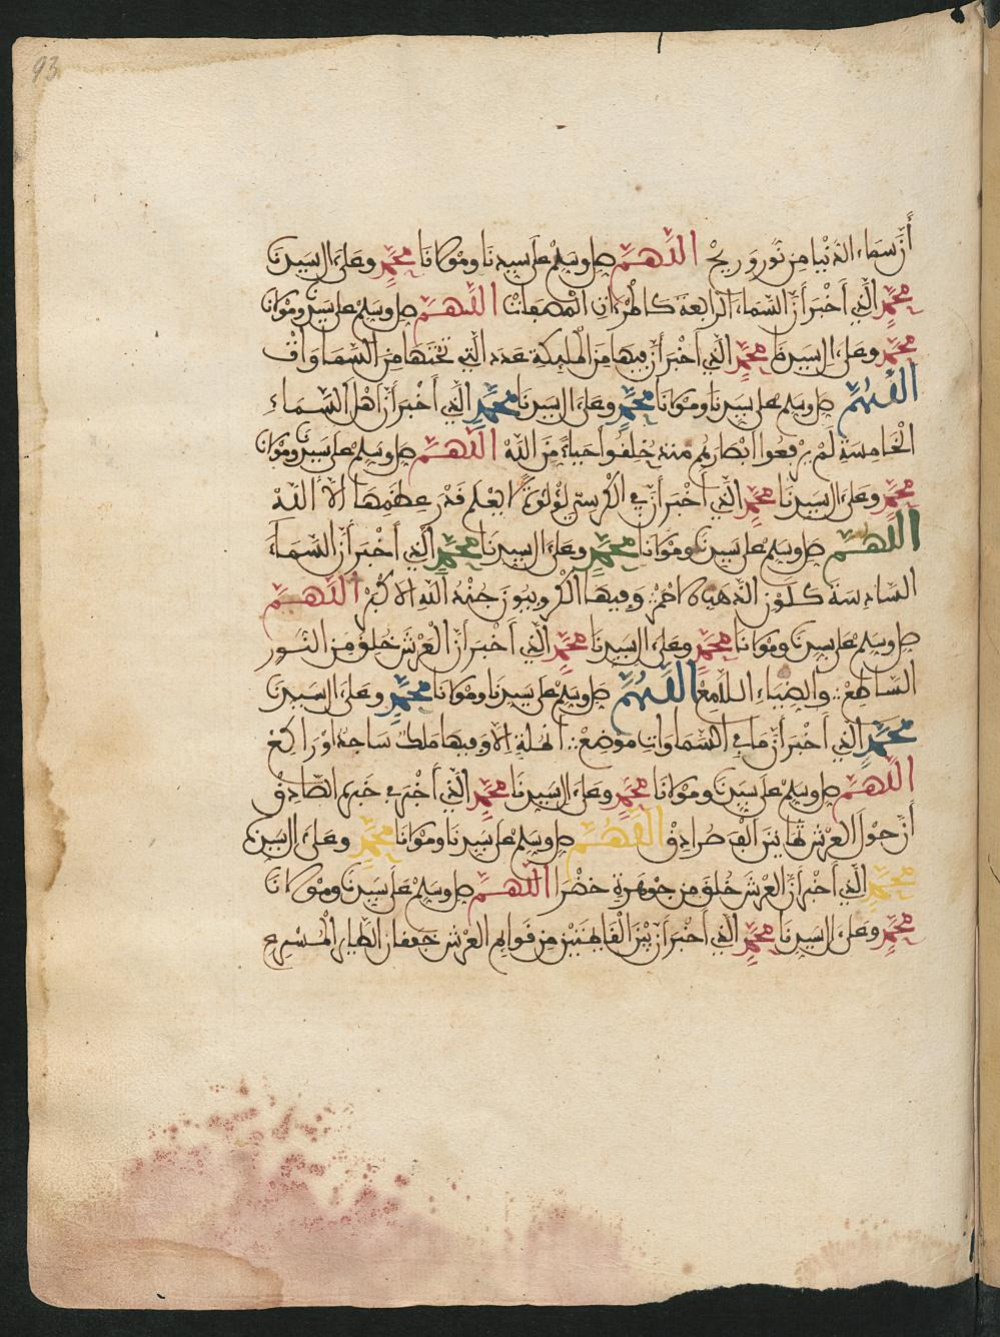 93
أن سماء الدنيا من نور وريح اللهم صل وسلم على سيدنا ومولانا محمد وعلى ال سيدنا
محمد الذي أخبر أن السماء الرابعة اللهم صل وسلم على سيدنا ومولانا
محمد وعلى ال سيدنا محمد الذي أخبر أن فيها من الملئكة عدد التي تحتها من السماوات
اللهم صل وسلم على سيدنا ومولانا محمد وعلى ال سيدنا محمد الذي أخبر أن أهل السماء
الخامسة لم يرفعوا ابصارهم منذ خلفوا حياء من الله اللهم صل وسلم على سيدنا ومولانا
محمد وعلى ال سيدنا محمد الذي أخبر أن في الكرسي لؤلؤة لا يعلم قدر عظمها الا الله
اللهم صل وسلم على سيدنا ومولانا محمد وعلى ال سيدنا محمد الذي أخبر أن السماء
السادسة كلون الذهب الاحمر وفيها الكروبيون جند الله الاكبر اللهم
صل وسلم على سيدنا ومولانا محمد وعلى ال سيدنا محمد الذي أخبر أن العرش خلق من النور
الساطع والضياء اللامع اللهم صل وسلم على سيدنا ومولانا محمد وعلى ال سيدنا
محمد الذي أخبر أن ما في السماوات موضع انملة الا وفيها ملك ساجد او راكع
اللهم صل وسلم على سيدنا ومولانا محمد وعلى ال سيدنا محمد الذي أخبر في خبره الصادق
أن حول العرش ثمانين ألف سرادق اللهم صل وسلم على سيدنا ومولانا محمد وعلى ال سيدنا
محمد الذي أخبر أن العرش خلق من جوهرة خضرا اللهم صل وسلم على سيدنا ومولانا
محمد وعلى ال سيدنا محمد الذي أخبر أن بين القايمتين من قوايم العرش خفقان الطاير المسرع